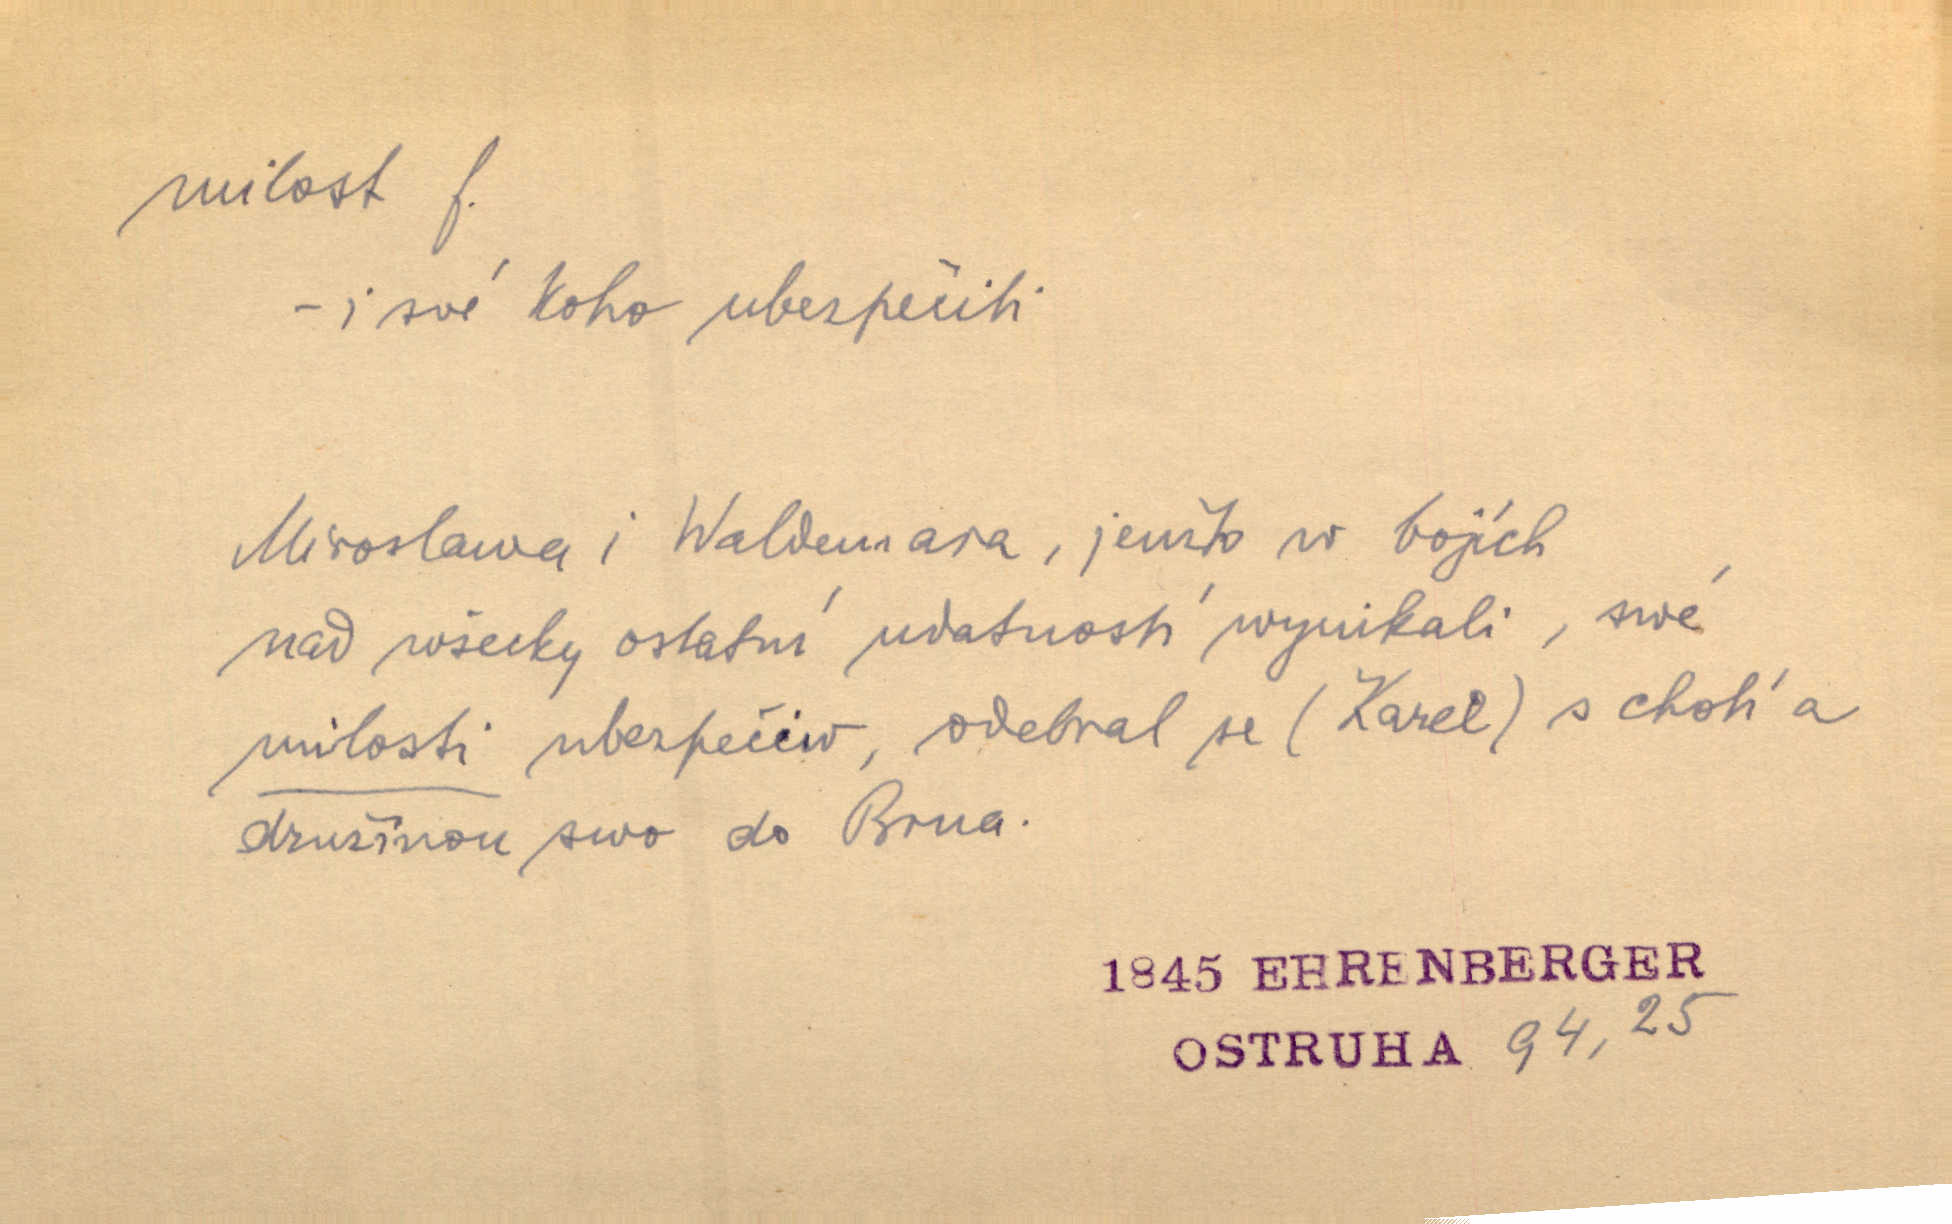 milost f.
- i své koho ubezpečiti
Miroslawa i Waldemara, jenžto w bojích
nad wšecky ostatní udatností wynikali, swé
milosti ubezpečiw, odebral se (Karel) s chotí a
družinou swo do Brna.
1845 EHRENBERGER
OSTRUHA 94,25